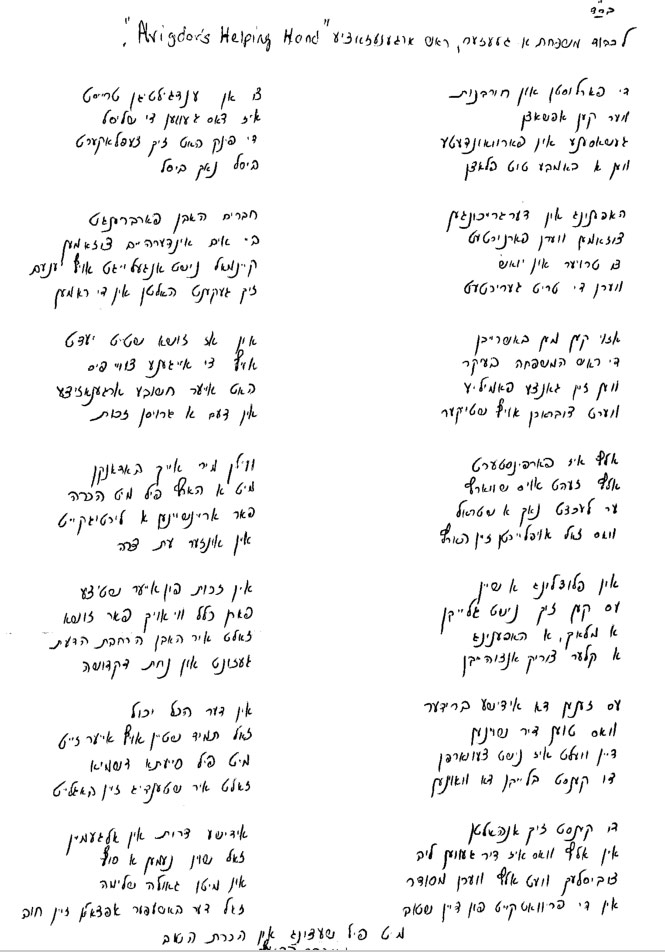 בס"ד
לכבוד משפחת א געצעה, ראש ארגענעזאציע "Avigdor's Helping Hand".
די פארלוסטן און חורבנות
ווער קען אפשאצן
געשאסענע אין פארוואונדעטע
ווען א באמבע טוט פלאצן
האפענונג אין דערגרייכונגען
צוזאמען ווערן פארניכטעט
צו טרויער אין יאוש
ווערן די טריט געריכטעט
אזוי קען מען באשרייבן
די ראש המשפחה בעיקר
ווען זיין גאנצע פאמיליע
ווערט צובראכן אויף שטיקער
אלעס איז פארפינסטערט
אלעס זעהט אויס שווארץ
ער לעכצט נאך א שטראל
וואס זאל אויפלייכטן זיין הארץ
אין פלוצלינג א שיין
עס קען זיך נישט גלייבן
א מלאך, א האפענונג
א קלער צוריק אנצוהייבן
עס זענען דא אידישע ברידער
וואס טוען דיר שוינען
דיין וועלט איז נישט צעווארפן
דו קענסט בלייבן דא וואוינען
דו קענסט זיך אנהאלטן
אין אלעס וואס איז דיר געווען ליב
צוביסלעך וועט אלעס ווערן מסודר
אין די פריוואטקייט פון דיין שטוב
צו אן ענדגילטיגן טרייסט
איז דאס געווען די שליסל
די פינק האט זיך צעפלאקערט
ביסל נאך ביסל
חברים האבן פארברענגט
ביי אים אינדערהיים צוזאמען
קיינמאל נישט אנגעלייגט אויף יענעם
זיך געקענט האלטן אין די ראמען
אין אז זושא שטייט יעצט
אויף די אייגענע צוויי פיס
האט אייער חשובע ארגענאזיצע
אין דעם א גרויסן זכות
ווילן מיר אייך באדאנקן
מיט א הארץ פיל מיט הכרה
פאר אריינשיינען א ליכטיגקייט
אין אונזער עת צרה
אין זכות פון אייער שטיצע
פארן כלל ווי אויך פאר זושא
זאלט איר האבן הרחבת הדעת
געזונט אין נחת דקדושה
אין דער הכל יכול
זאל תמיד שטיין אויף אייער זייט
מיט פיל סייעתא דשמיא
זאלט איר שטענדיג זיין באגלייט
אידישע צרות אין אלגעמיין
זאל שוין נעמען א סוף
אין מיטן גאולה שלימה
זאל דער באשעפער אפצאלן זיין חוב
מיט פיל שעצונג אין הכרת הטוב